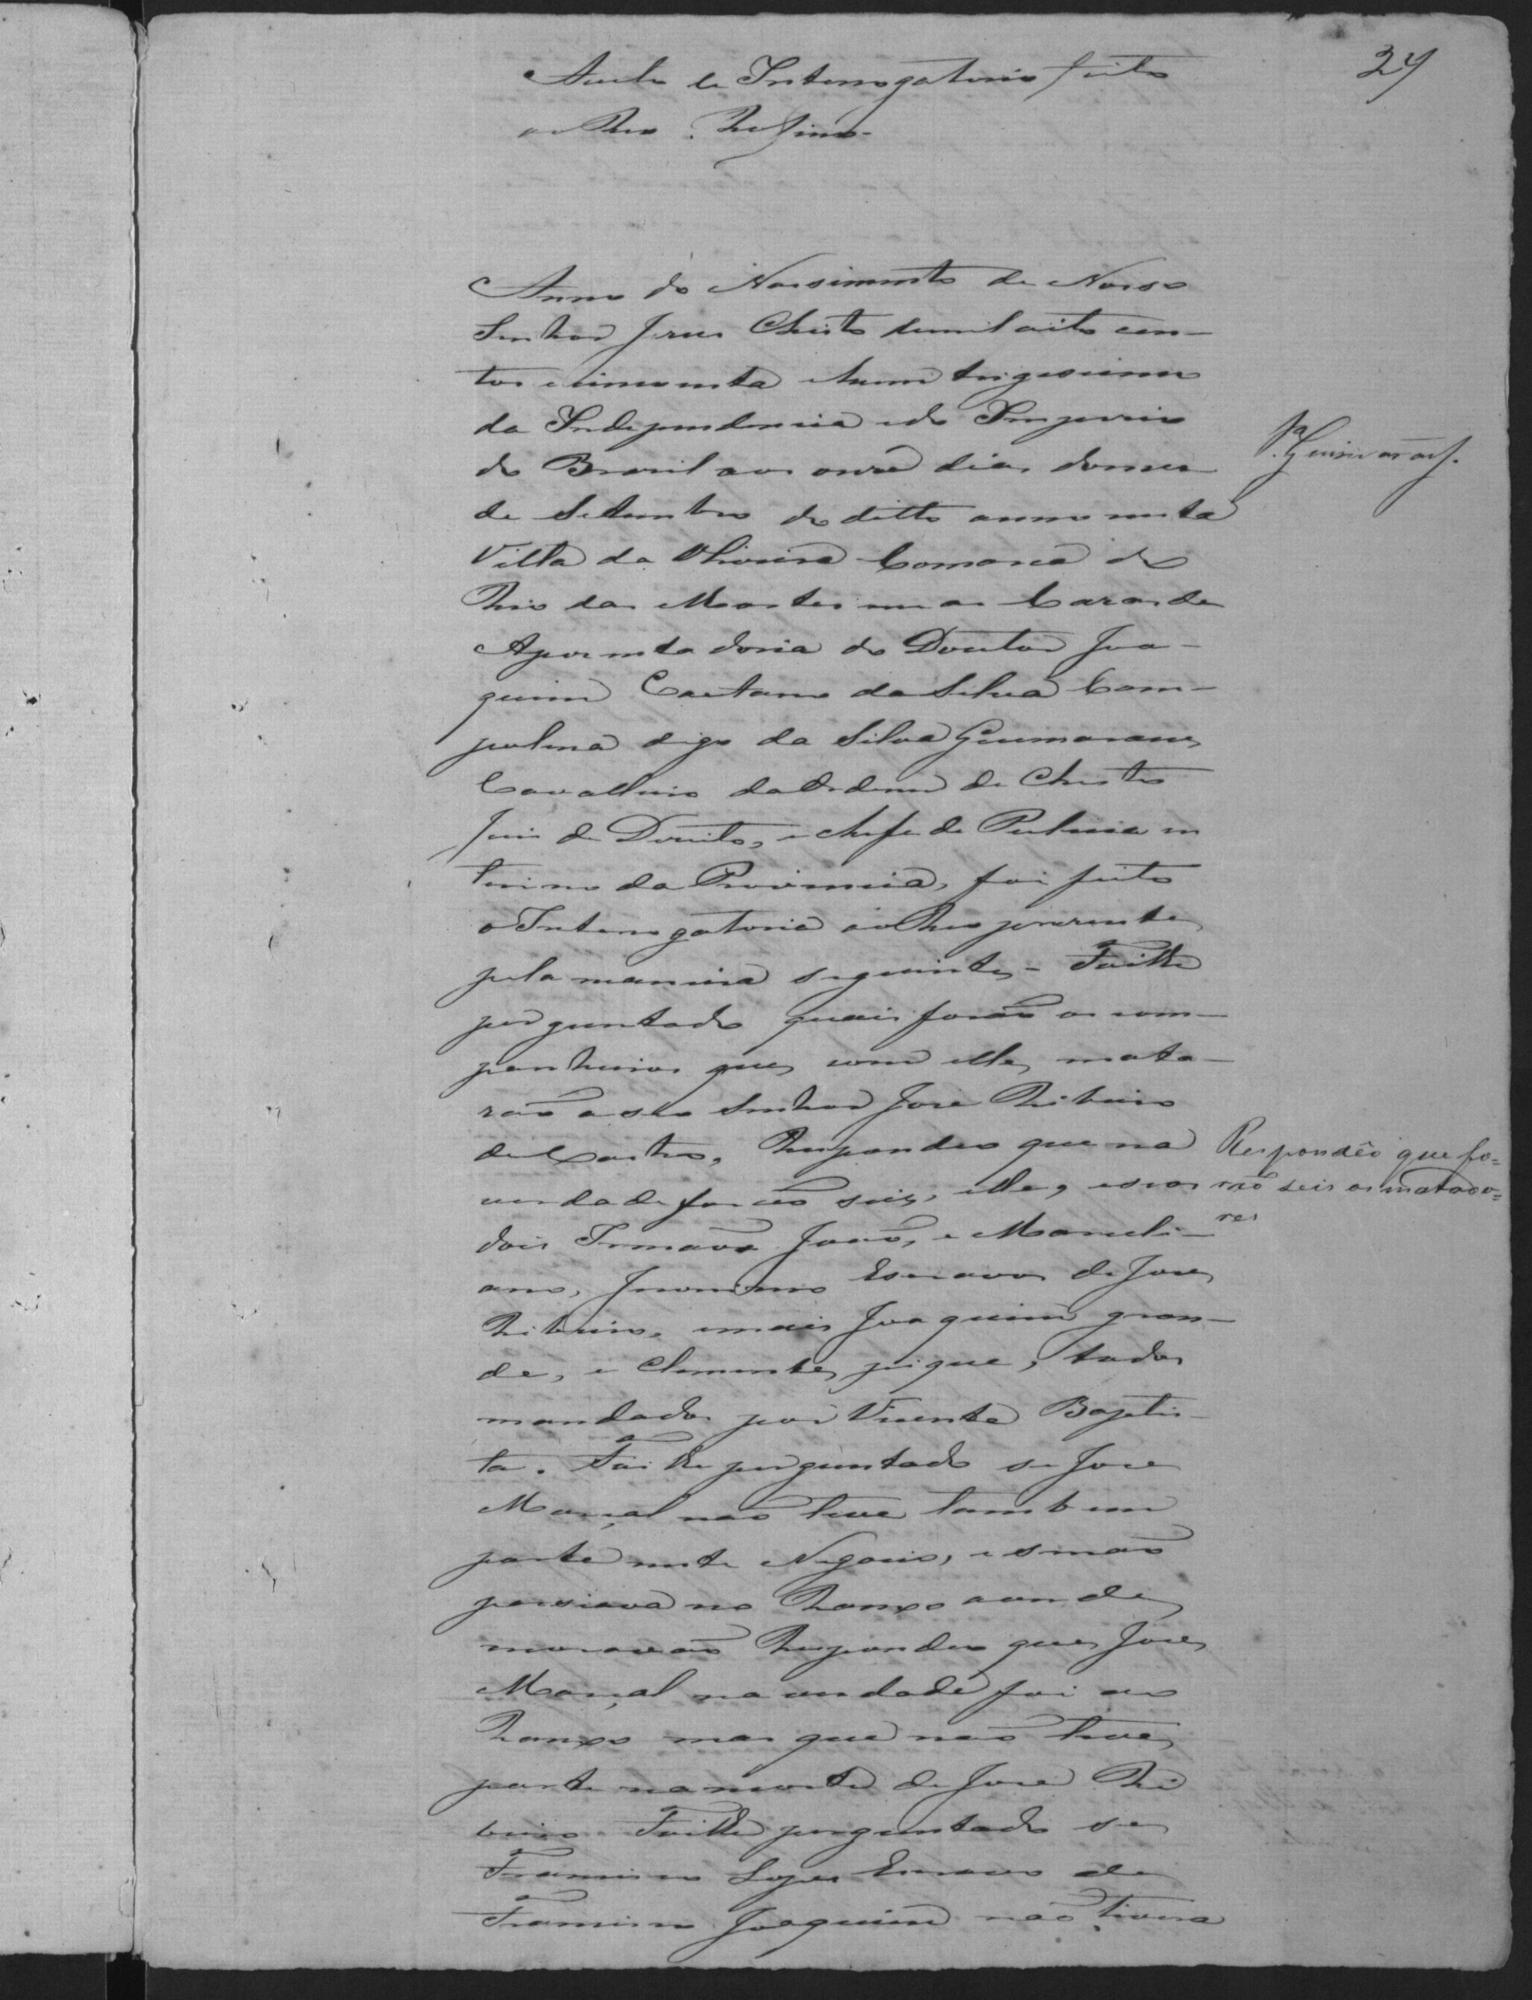 24
Auto de Interrogatorio feito
ao Reo Rufino
Anno do Nassimento de Nosso
Senhor Jesus Christo demil oito cen-
tos ecincoenta ehum trigesimo
da Independencia edo Imperio
do Brasil aos onze dias domes
de Setembro do ditto anno nesta
Villa da Oliveira Comarca do
Rio das Mortes nas Casas de
Aposentadoria do Doutor Joa-
quim Caetano da Silva Cam-
polina digo da Silva Guimaraens
Cavalleiro da Ordem de Christo
Juis de Direito, e chefe de Policia in
terino da Provincia, foi feito
o Interrogatorio ao Reo prezente
pela maneira seguinte - Foilhe
perguntado quais forão os com-
panheiros que com elle mata-
rão a seo Senhor José Ribeiro
de Castro, Respondeo que na
verdade forão seis, elle, eseos
dois Irmãos João, e Marceli-
ano, Jeronimo Escravos de José
Ribeiro, emais Joaquim gran-
de, e Clemente, todos
mandados por Vicente Baptis-
ta. Foilhe perguntado se José
Marçal não teve tambem
parte neste Negocio, e se não
no Ranxo aonde
moravão Respondeo que José
Marçal na verdade foi ao
Ranxo mas que não teve
parte na morte de José Ri
beiro. Foilhe perguntado se
Francisco Lopes Escravo de
Francisco Joaquim não tivera
Respondêo que fo=
rão seis os matado=
res